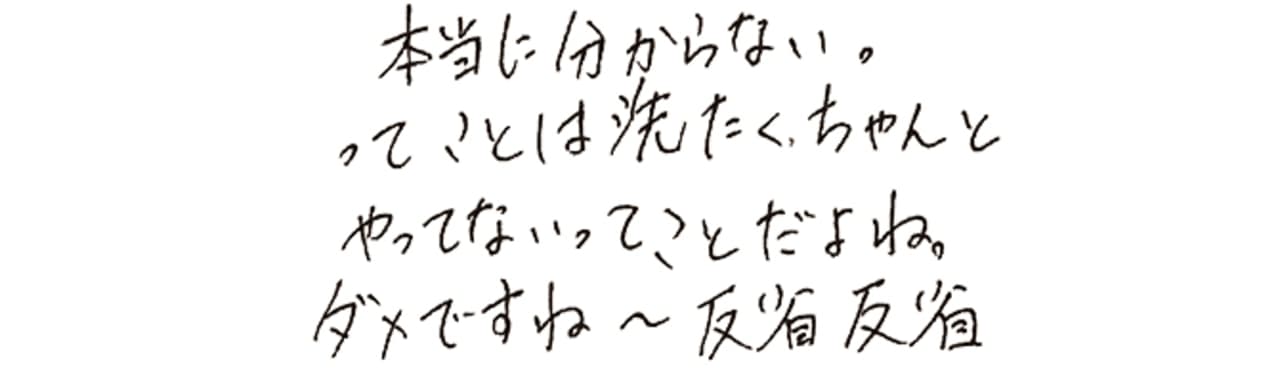 本当に分からない。
ってことは洗たく、ちゃんと
やってないってことだよね。
ダメですね〜反省反省